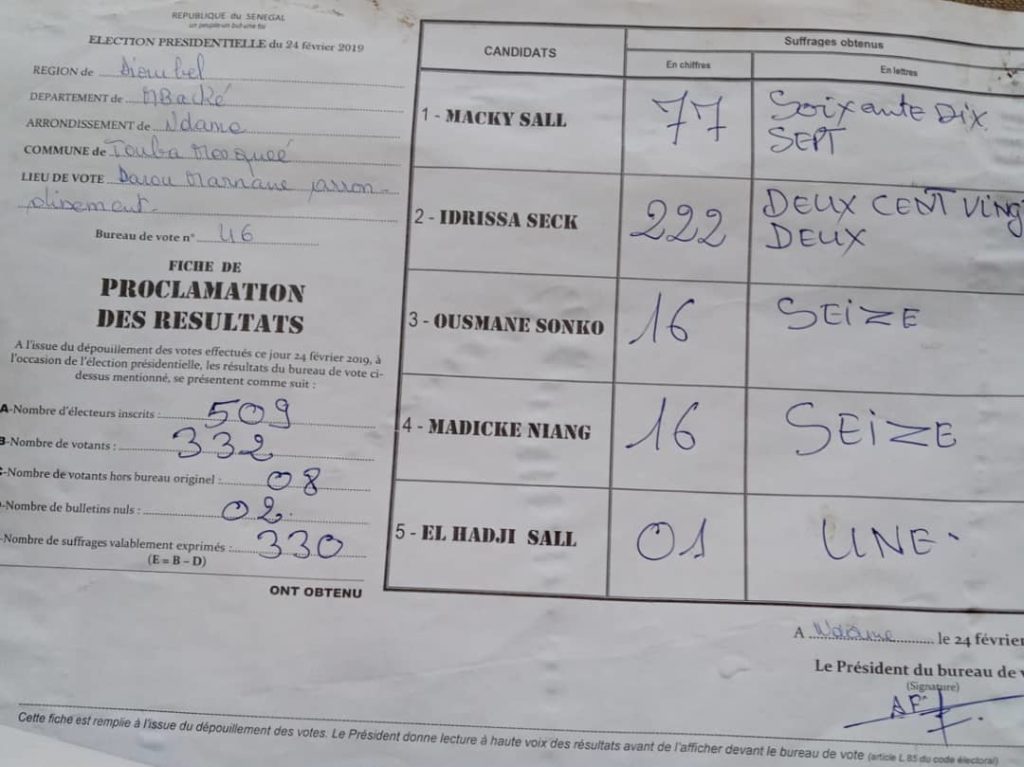 REPUBLIQUE du SENEGAL
un peuple-un but-une foi
ELECTION PRESIDENTIELLE du 24 février 2019
REGION de Diourbel
DEPARTEMENT de MBacké
ARRONDISSEMENT de Ndame
COMMUNE de Touba Mosqueé
LIEU DE VOTE Darou Marnane
Bureau de vote n° 46
FICHE DE
PROCLAMATION
DES RESULTATS
A l'issue du dépouillement des votes effectués ce jour 24 février 2019, à
l'occasion de l'élection présidentielle, les résultats du bureau de vote ci-
dessus mentionné, se présentent comme suit :
A-Nombre d'électeurs inscrits : 509
B-Nombre de votants : 332
-Nombre de votants hors bureau originel : 08
-Nombre de bulletins nuls : 02
-Nombre de suffrages valablement exprimés : 330
(E = B – D)
ONT OBTENU
CANDIDATS
Suffrages obtenus
En chiffres
En lettres
1 - MACKY SALL 77 SOIXANTE DIX
SEPT
2 - IDRISSA SECK 222 DEUX CENT VING
DEUX
3 - OUSMANE SONKO 16 SEIZE
4 - MADICKE NIANG 16 SEIZE
5 - EL HADJI SALL 01 UNE.
A Ndame le 24 février
Le Président du bureau de v
(Signature)
Cette fiche est remplie à l'issue du dépouillement des votes. Le Président donne lecture à haute voix des résultats avant de l'afficher devant le bureau de vote (article L 85 du code électoral)